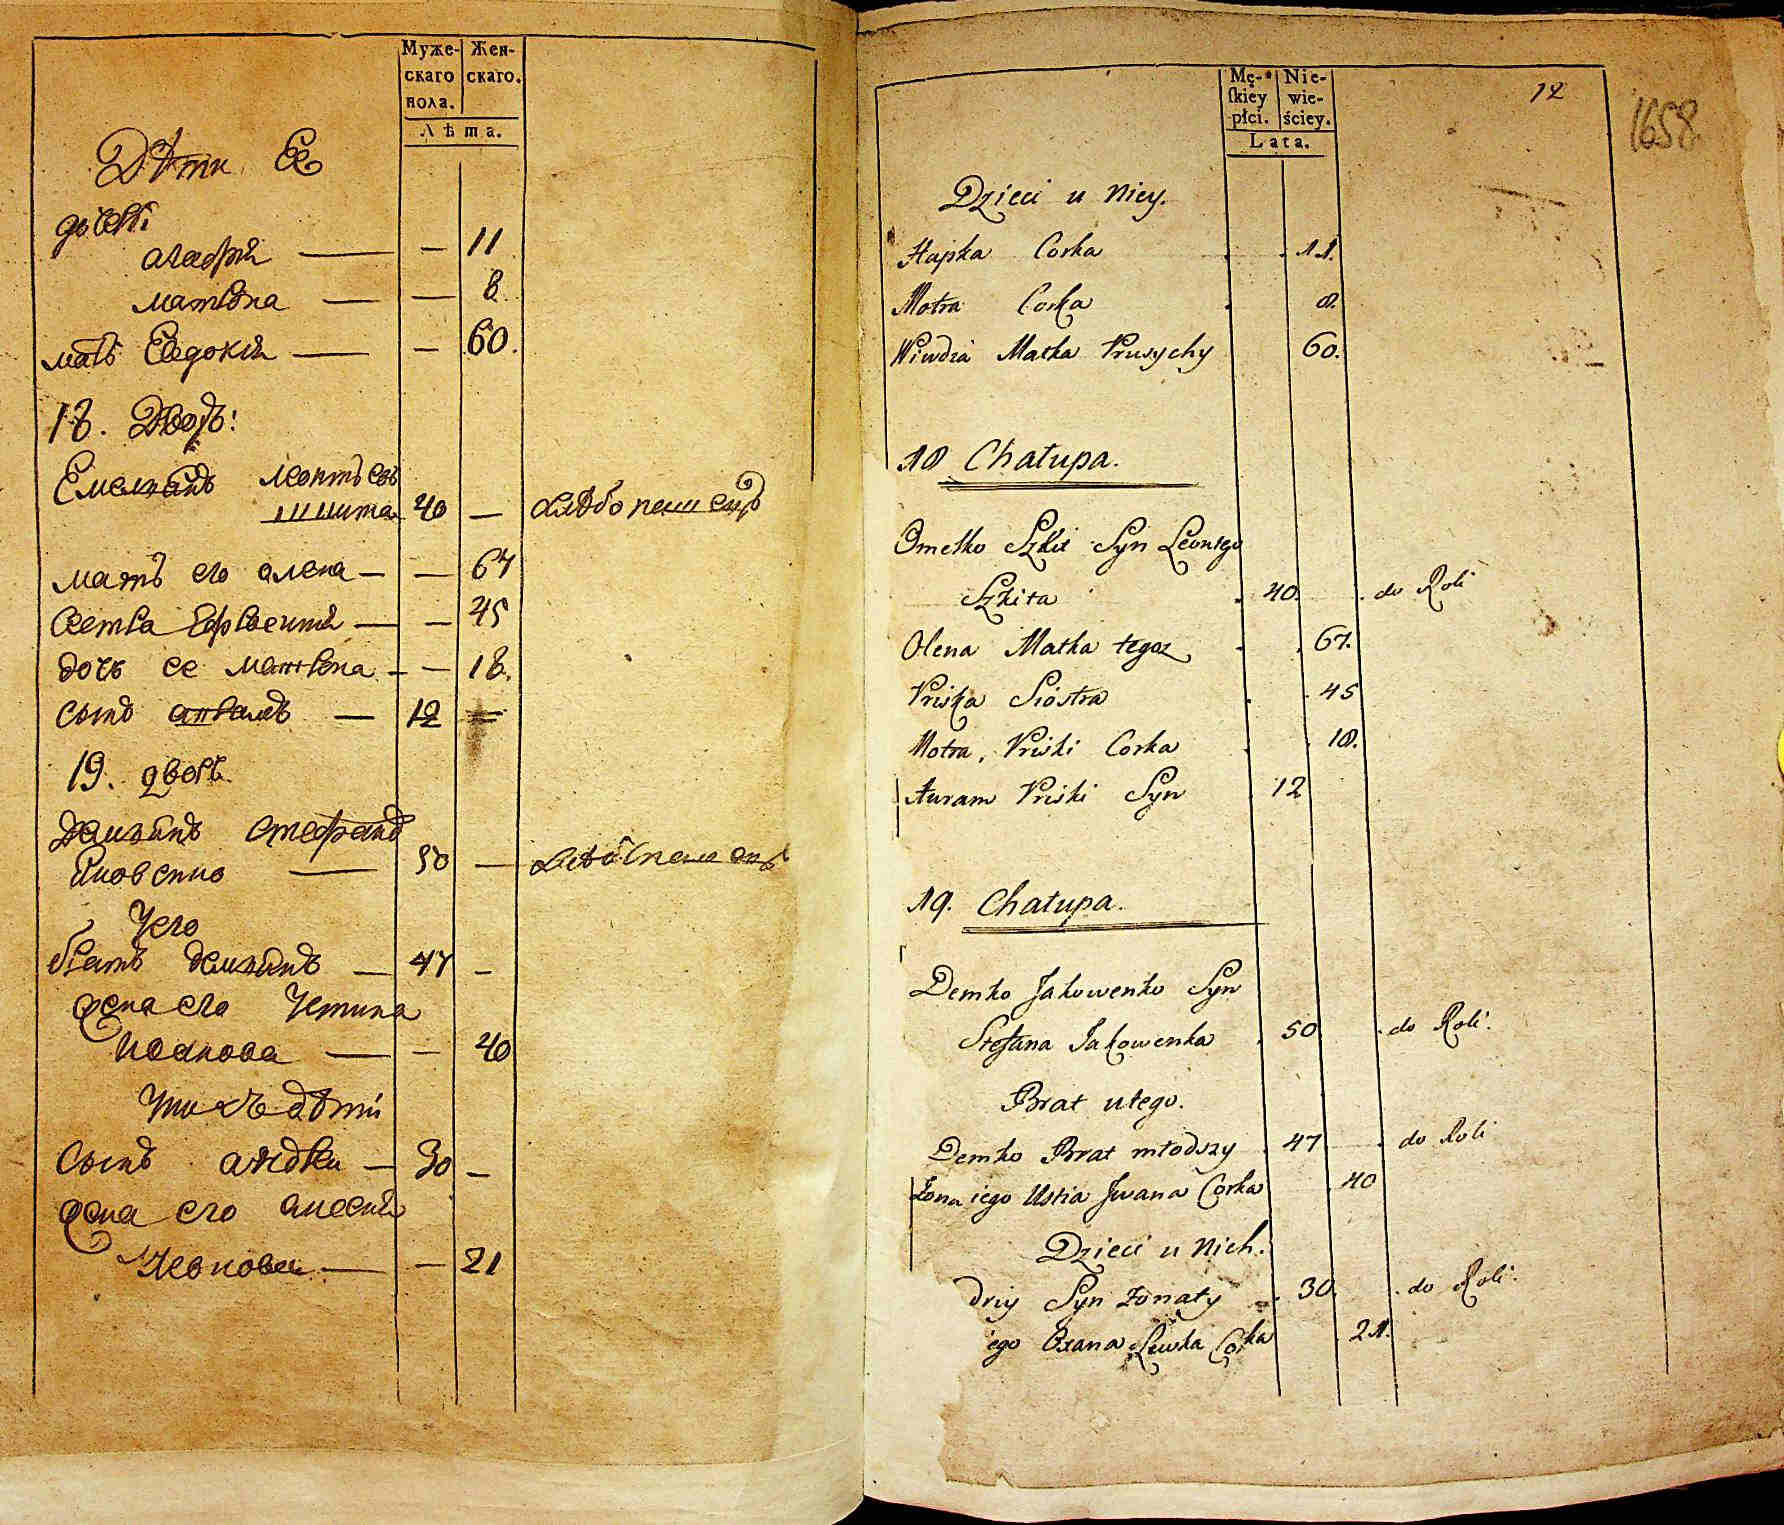 Муже-
скаго
пола.
Жен-
скаго.
Лѣта.
Дѣти Ее
дочкѣ
агафия — — 11
матрона — — 8
мать Евдокия — — 60.
18. Дворъ:
Емельянъ леонтьевъ
шкита 40 — хлѣбопашецъ
мать его алена — — 67
Сестра Ефросиния — — 45
дочь ее матрона — — 18.
сынъ аврамъ — 12 —
19. дворъ
Демьянъ стефановъ
Яковенко — 50 — хлѣбопашецъ
Уего
братъ демьянъ — 47 —
жена его Устина
Иванова — — 40
Унихъ дѣти
сынъ андрей — 30 —
жена его
Леонова — — 21
Mę-
skiey
płci.
Nie-
wie-
ściey.
Lata.
12
1658
Dzieci u Niey.
Hapka Corka . . 11.
Motra Corka . 8.
Wiwdza Matka Prusychy 60.
18 Chałupa.
Omelko Szkit Syn Leontego
Szkita . 40. . do Roli
Olena Matka tegoż . . 67.
Priska Siostra . . 45
Motra, Priski Corka . . 18.
Auram Priski Syn 12
19. Chałupa.
Demko Jakowenko Syn
Stefana Jakowenka . 50 . do Roli.
Brat utego.
Demko Brat młodszy . 47 . do Roli
Żona iego Ustia Jwana Corka . 40
Dzieci u Nich.
driy Syn żonaty . 30. . do Roli.
iego Oxana Lewka Corka . 21.